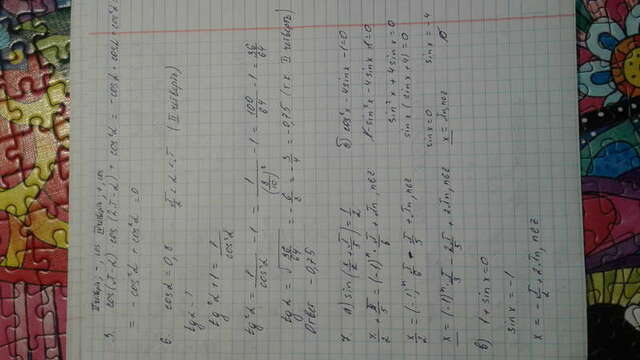 II четверть, -, cos IV четверть, +, cos
3. cos(π-α) cos(2π-α) + cos²α = -cosα · cosα + cos²α =
= -cos²α + cos²α = 0
6. cosα = 0,8 π/2 < α < π (II четверть)
tgα - ?
tg²α + 1 = 1/cos²α
tg²α = 1/cos²α - 1 = 1/(8/10)² - 1 = 100/64 - 1 = 36/64
tgα = √36/64 = -6/8 = -3/4 = -0,75 (т.к. II четверть)
Ответ -0,75
7. а) sin(x/2 + π/5) = 1/2
x/2 + π/5 = (-1)ⁿ · π/6 + πn, n∈z
x/2 = (-1)ⁿ π/6 - π/5 + πn, n∈z
x = (-1)ⁿ π/3 - 2π/5 + 2πn, n∈z
б) cos²x - 4sinx - 1 = 0
1 - sin²x - 4sinx - 1 = 0
sin²x + 4sinx = 0
sinx (sinx + 4) = 0
sinx = 0 sinx = -4
x = πn, n∈z ∅
в) 1 + sinx = 0
sinx = -1
x = -π/2 + 2πn, n∈z